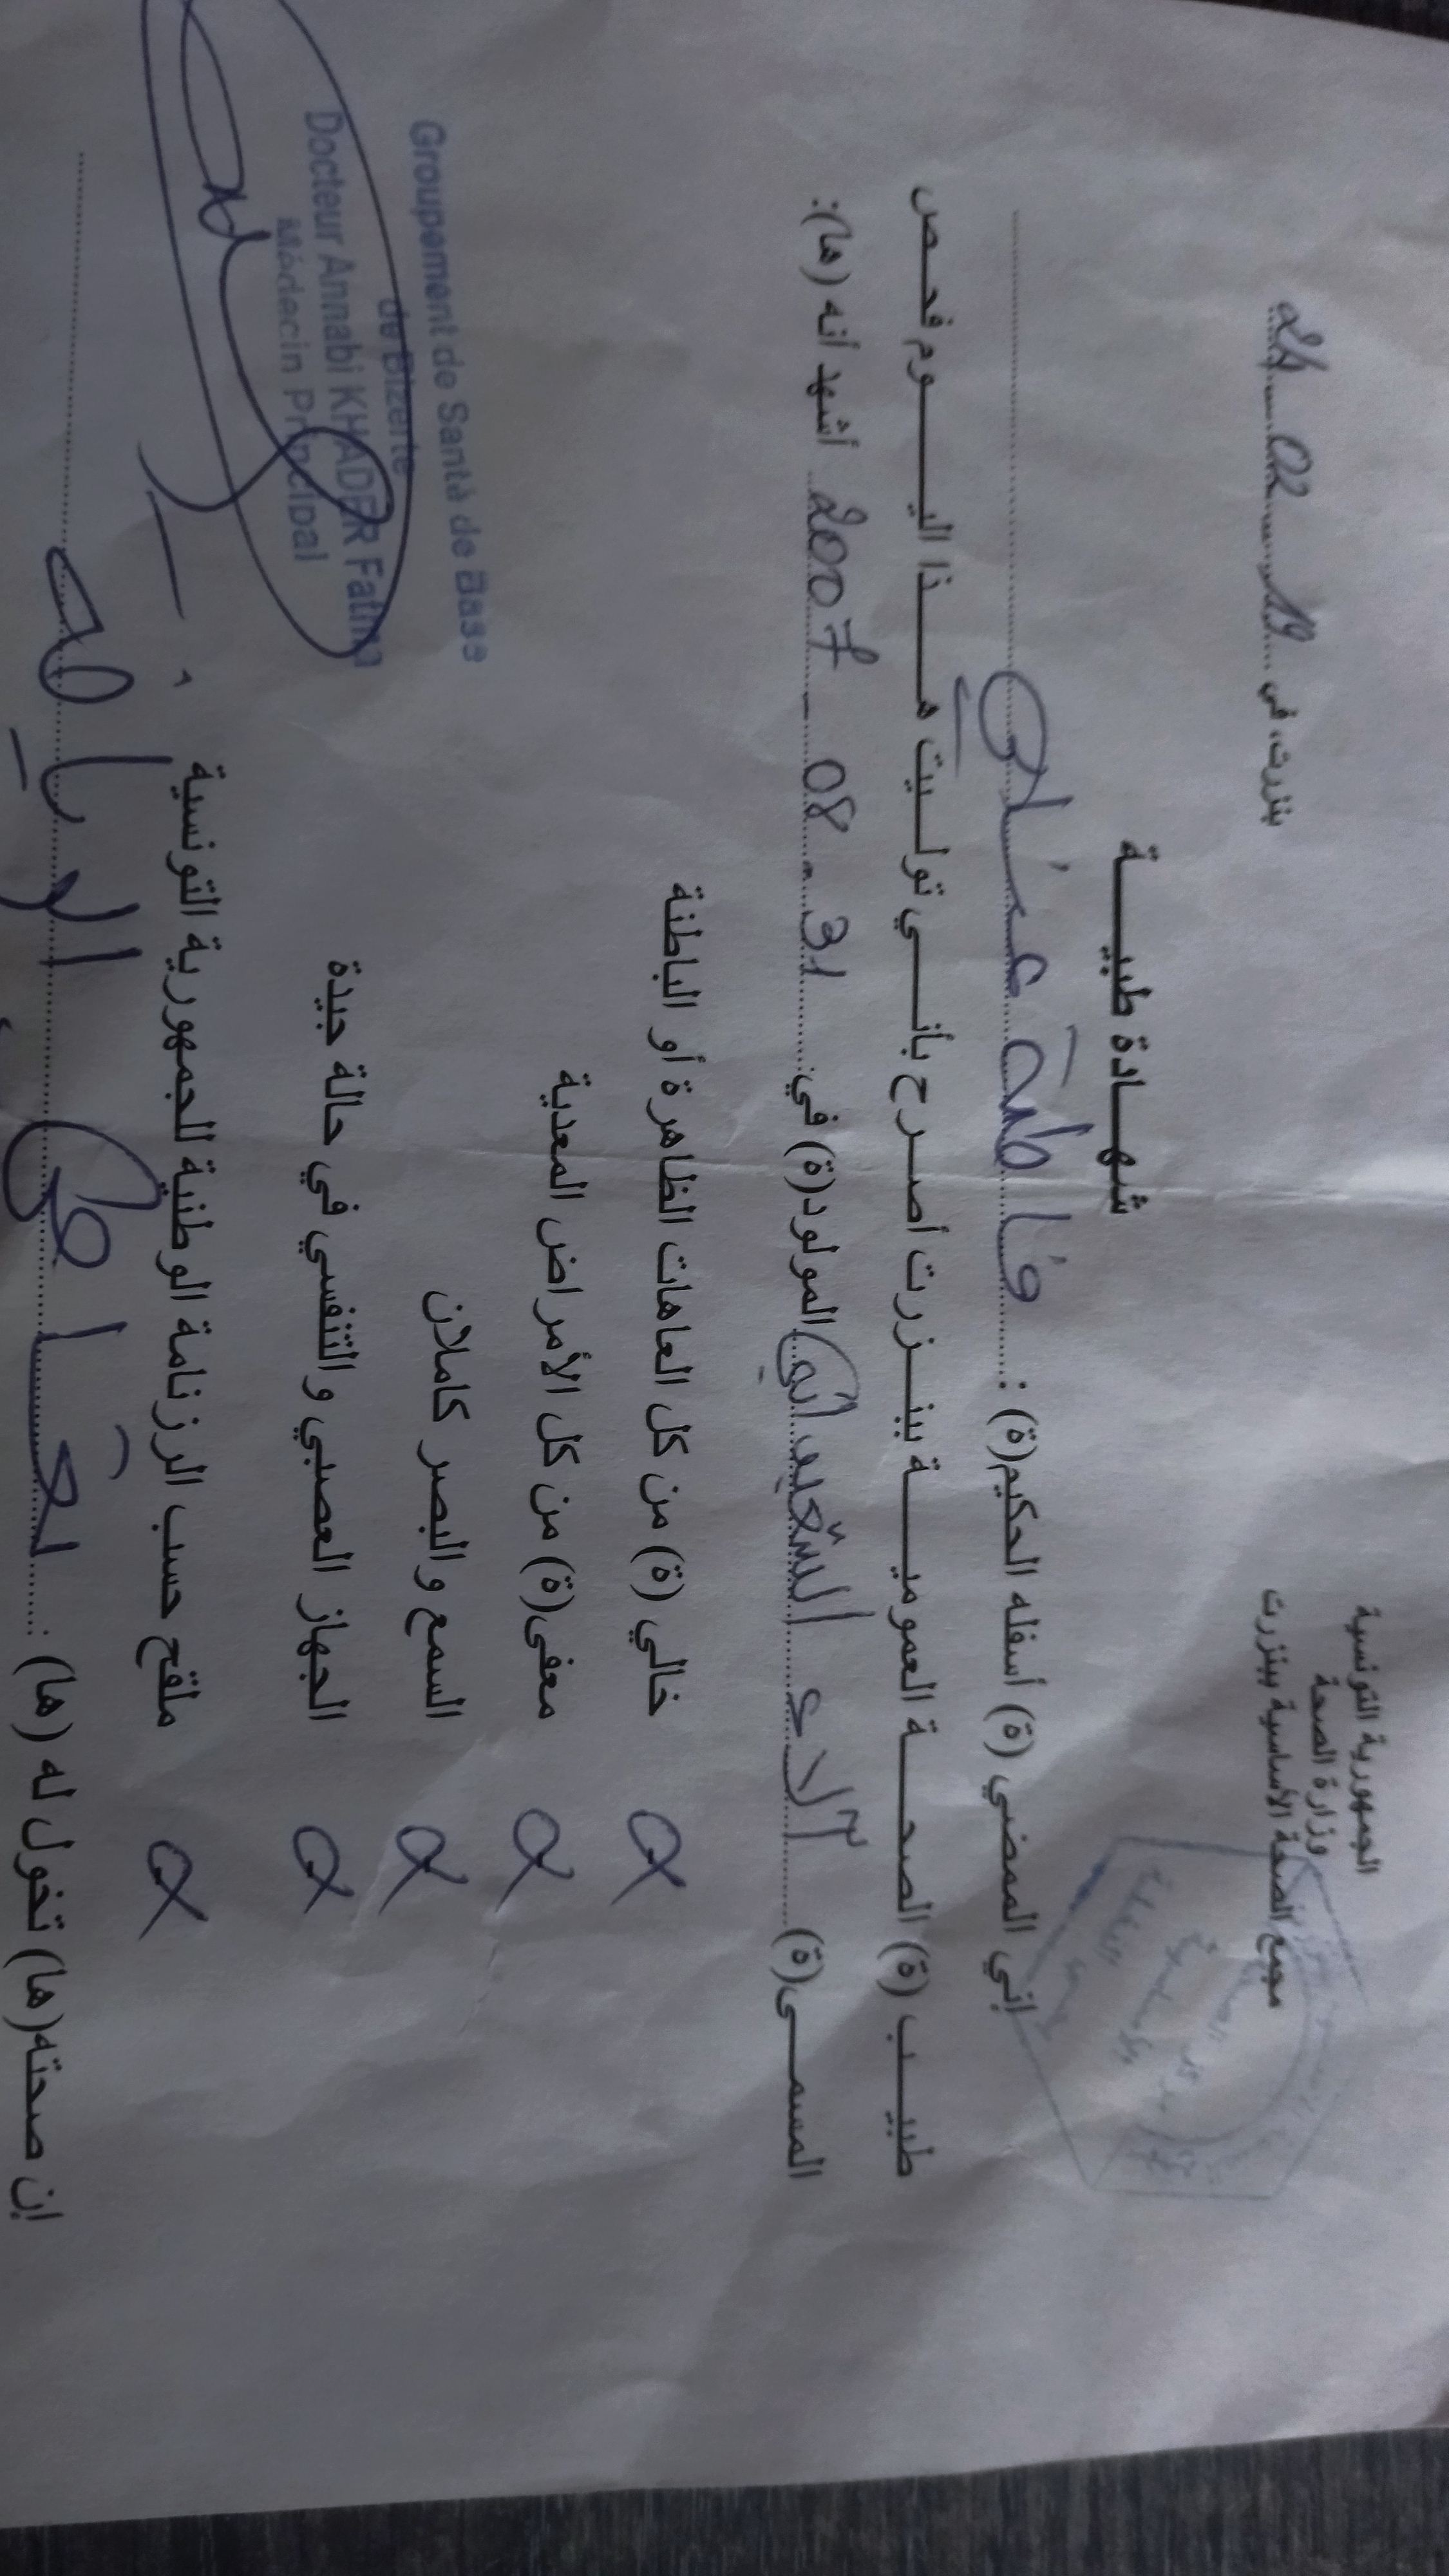 الجمهورية التونسية
وزارة الصحة
مجمع الصحة الأساسية ببنزرت
بنزرت، في 19 02 24
شهــادة طبيــة
إني الممضي (ة) أسفله الحكيم(ة): فاطمة عنابي
طبيب (ة) الصحة العمومية ببنزرت أصرح بأني توليت هذا اليوم فحص
المسمى(ة) آلاء السعيداني المولود(ة) في: 31 - 08 - 2007 أشهد أنه (ها):
خالي (ة) من كل العاهات الظاهرة أو الباطنة
معفى(ة) من كل الأمراض المعدية
السمع والبصر كاملان
الجهاز العصبي والتنفسي في حالة جيدة
ملقح حسب الرزنامة الوطنية للجمهورية التونسية
إن صحته(ها) تخول له (ها):
Groupement de Santé de Base
de Bizerte
Docteur Annabi KHADER Fatma
Médecin Principal